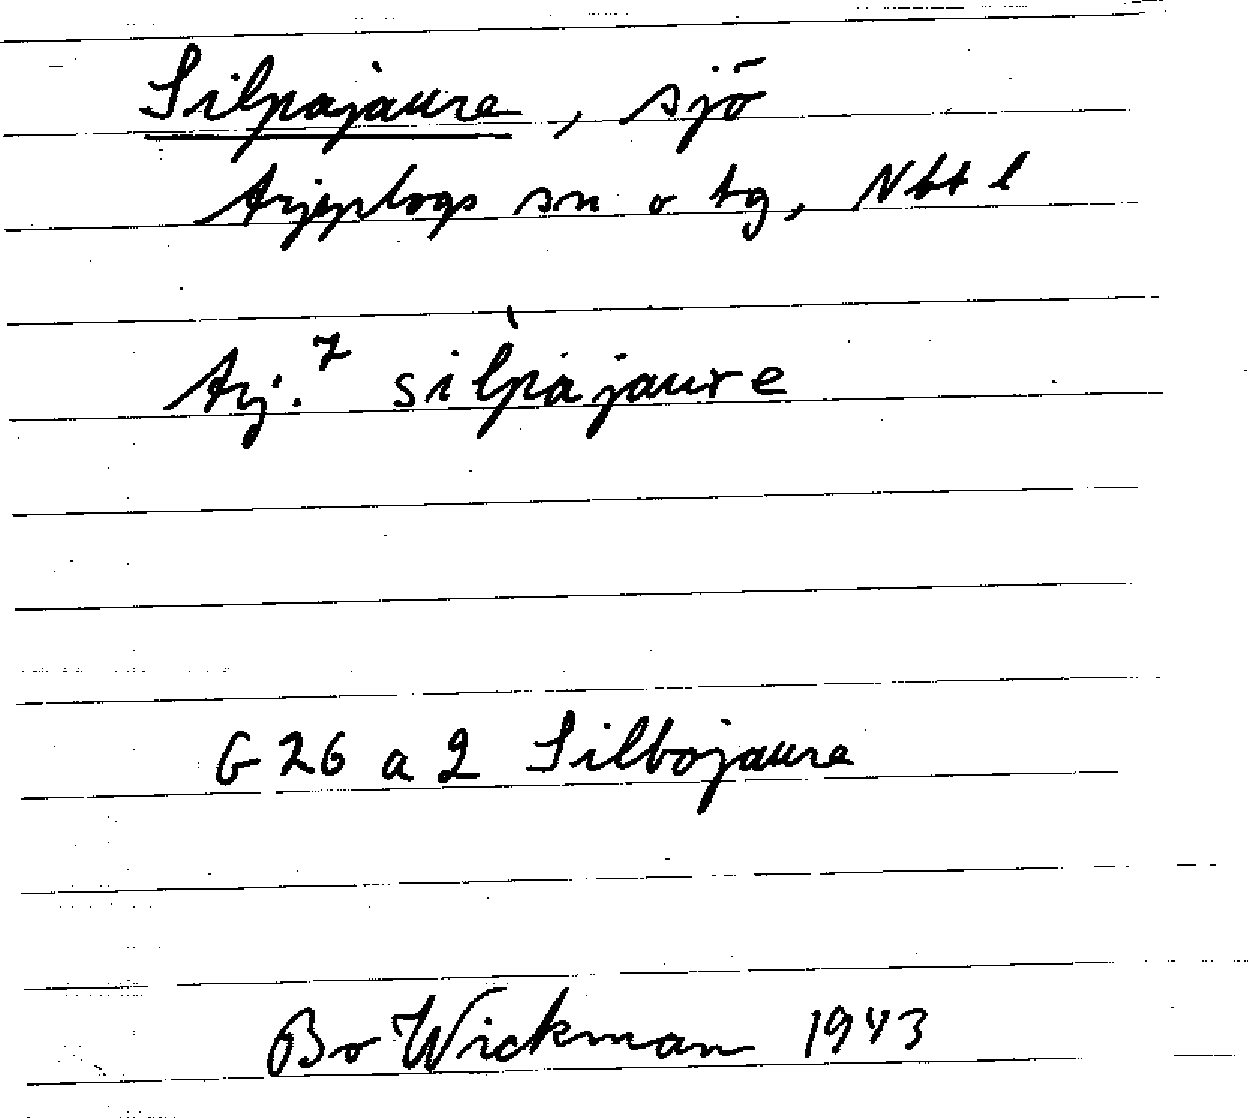 Silpajaure, sjö
Arjeplogs sn o tg, Nbtt l
Arj.⁷ silˋpajaure
G 26 a 2 Silbojaure
Bo Wickman 1943